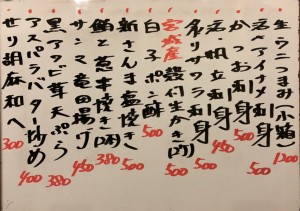 生ウニつまみ(小鉢) 1200
活〆アイナメ刺身 500
かつお刺身 500
活帆立刺身 450
金リサワラ刺身 500
宮城産殻付生かき(2ケ) 500
白子ポン酢 500
新さんま塩焼き 500
鮪と葱串焼き(2本) 380
サンマ竜田揚げ 450
黒アワビ茸天ぷら 380
アスパラバター炒め 400
せり胡麻和へ 300